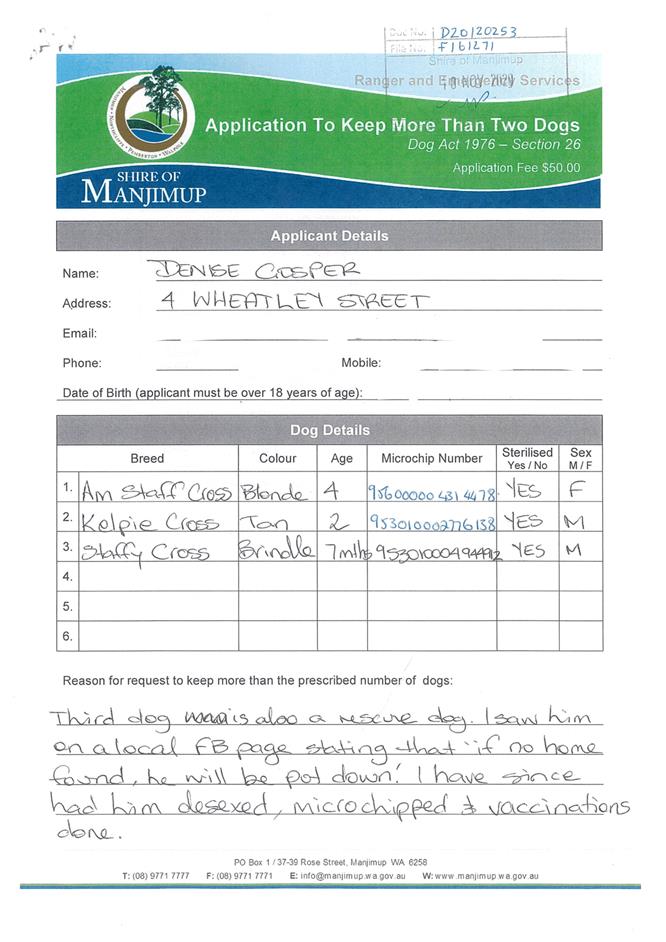 Doc No. D20/20253
File No. F161271
Shire of Manjimup
10 NOV 2020
Ranger and Emergency Services
Application To Keep More Than Two Dogs
Dog Act 1976 – Section 26
Application Fee $50.00
MANJIMUP • NORTHCLIFFE • PEMBERTON • WALPOLE
SHIRE OF
MANJIMUP
Applicant Details
Name: DENISE COSPER
Address: 4 WHEATLEY STREET
Email:
Phone: Mobile:
Date of Birth (applicant must be over 18 years of age):
Dog Details
Breed Colour Age Microchip Number Sterilised Yes / No Sex M / F
1. Am Staff Cross Blonde 4 956000004314478 YES F
2. Kelpie Cross Tan 2 953010002776138 YES M
3. Staffy Cross Brindle 7mths 953010004944912 YES M
4.
5.
6.
Reason for request to keep more than the prescribed number of dogs:
Third dog is also a rescue dog. I saw him
on a local FB page stating that "if no home
found, he will be put down!" I have since
had him desexed, microchipped & vaccinations
done.
PO Box 1 / 37-39 Rose Street, Manjimup WA 6258
T: (08) 9771 7777 F: (08) 9771 7771 E: info@manjimup.wa.gov.au W: www.manjimup.wa.gov.au